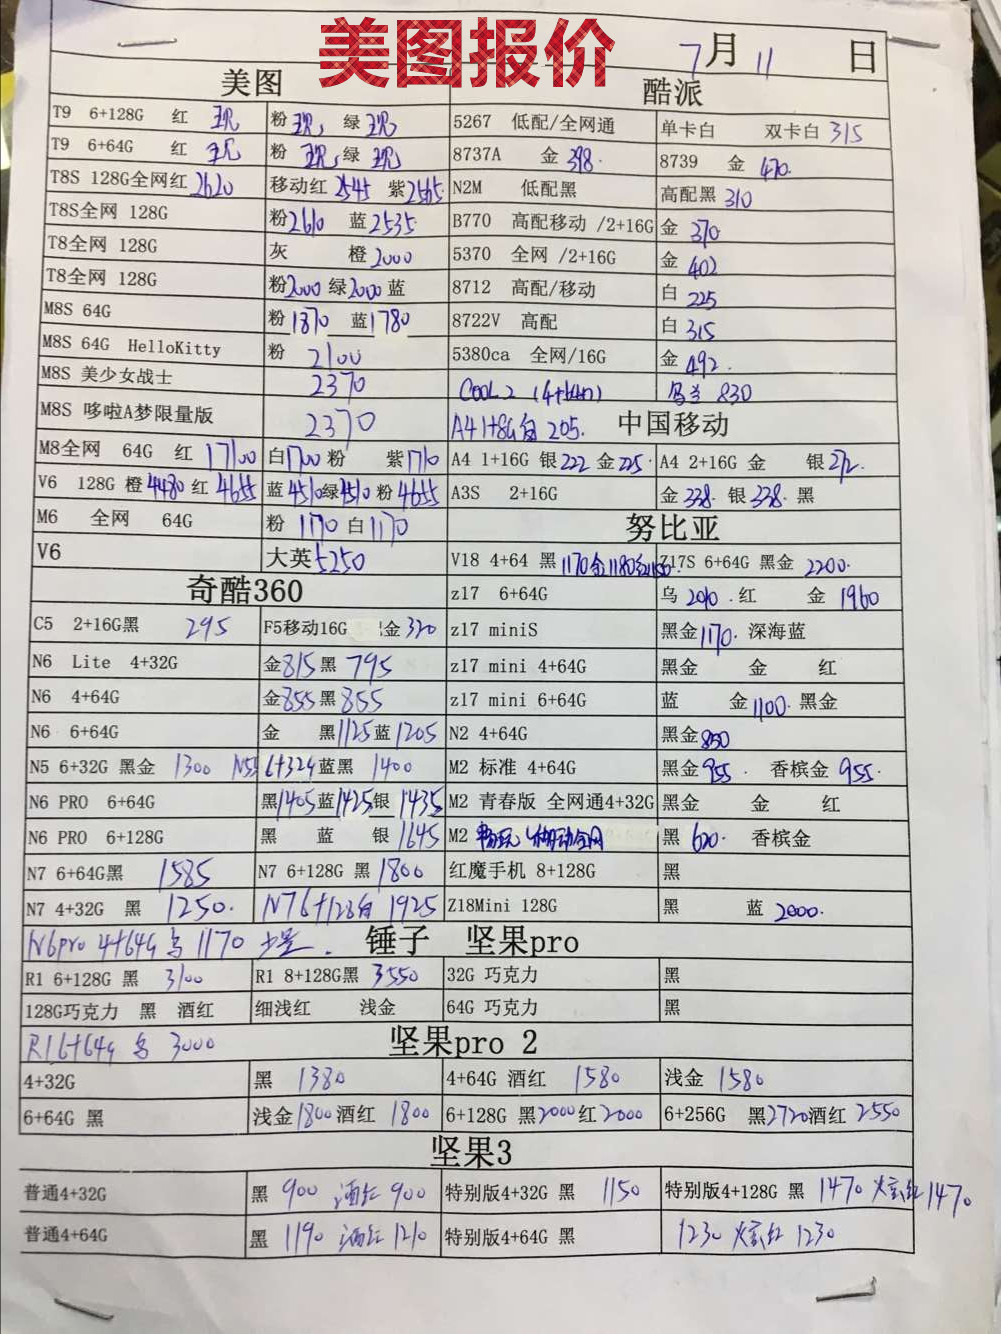 美图报价
7月11日
美图 酷派
T9 6+128G 红 现 粉 现, 绿 现 5267 低配/全网通 单卡白 双卡白 315
T9 6+64G 红 现 粉 现, 绿 现 8737A 金 398. 8739 金 470.
T8S 128G全网红 2620 移动红 2545 紫 2565 N2M 低配黑 高配黑 310
T8S全网 128G 粉 2610 蓝 2535 B770 高配移动 /2+16G 金 370
T8全网 128G 灰 橙 2000 5370 全网 /2+16G 金 402
T8全网 128G 粉 2000 绿 2000 蓝 8712 高配/移动 白 225
M8S 64G 粉 1870 蓝 1780 8722V 高配 白 315
M8S 64G HelloKitty 粉 2100 5380ca 全网/16G 金 492.
M8S 美少女战士 2370 COOL2 830
M8S 哆啦A梦限量版 2370 A4 1+8G 白 205. 中国移动
M8全网 64G 红 1700 白 1700 粉 紫 1710 A4 1+16G 银 222 金 225. A4 2+16G 金 银 272.
V6 128G 橙 4480 红 4655 蓝 4510 绿 4510 粉 4655 A3S 2+16G 金 238. 银 238. 黑
M6 全网 64G 粉 1170 白 1170 努比亚
V6 大英 5250 V18 4+64 黑 1170 金 1180 红 1150. Z17S 6+64G 黑金 2200.
奇酷360 z17 6+64G 乌 2010. 红 金 1960
C5 2+16G黑 295 F5移动16G 金 320 z17 miniS 黑金 1170. 深海蓝
N6 Lite 4+32G 金 815 黑 795 z17 mini 4+64G 黑金 金 红
N6 4+64G 金 855 黑 855 z17 mini 6+64G 蓝 金 1100. 黑金
N6 6+64G 金 黑 1125 蓝 1205 N2 4+64G 黑金 850
N5 6+32G 黑金 1300 N5S 6+32G 蓝黑 1400 M2 标准 4+64G 黑金 955. 香槟金 955.
N6 PRO 6+64G 黑 1405 蓝 1425 银 1435 M2 青春版 全网通4+32G 黑金 金 红
N6 PRO 6+128G 黑 蓝 银 1645 M2 畅玩 黑 620. 香槟金
N7 6+64G黑 1585 N7 6+128G 黑 1800 红魔手机 8+128G 黑
N7 4+32G 黑 1250. N7 6+128白 1925 Z18Mini 128G 黑 蓝 2000.
N6pro 4+64G 1170 少量. 锤子 坚果pro
R1 6+128G 黑 3100 R1 8+128G黑 3550 32G 巧克力 黑
128G巧克力 黑 酒红 细浅红 浅金 64G 巧克力 黑
R1 6+64G 3000 坚果pro 2
4+32G 黑 1380 4+64G 酒红 1580 浅金 1580
6+64G 黑 浅金 1800 酒红 1800 6+128G 黑 2000 红 2000 6+256G 黑 2720 酒红 2550
坚果3
普通4+32G 黑 900 酒红 900 特别版4+32G 黑 1150 特别版4+128G 黑 1470 炫红 1470
普通4+64G 黑 1190 酒红 1210 特别版4+64G 黑 1230 炫红 1230